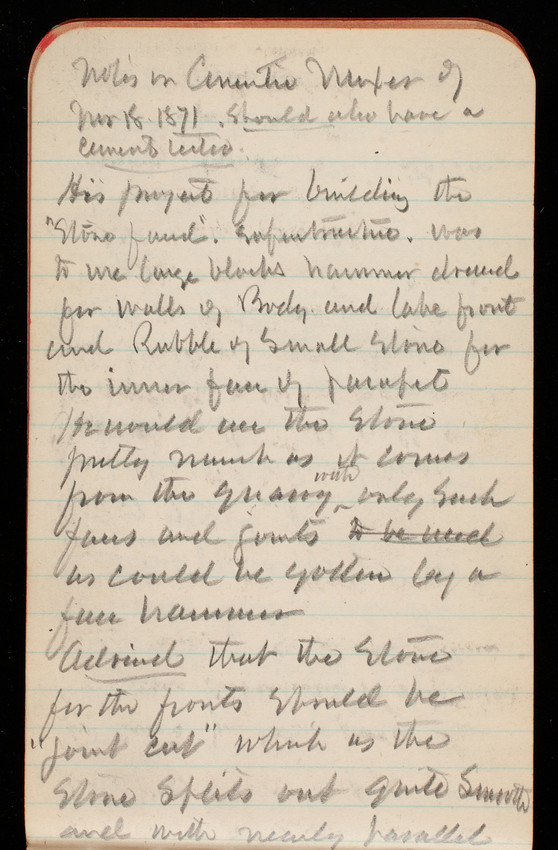 Notes on Cement Mixer of
Nov 18 1871. Should also have a
cement tester.
His project for building the
"Stone faced". Superstructure. was
to use large blocks hammer dressed
for walls of Body and lake front
and Rubble of Small Stone for
the inner face of parapet
He would use the Stone
pretty much as it comes
from the quarry with only such
faces and joints to be used
as could be gotten by a
face hammer
Advised that the Stone
for the fronts should be
"joint cut" which as the
Stone Splits out quite Smooth
and with nearly parallel